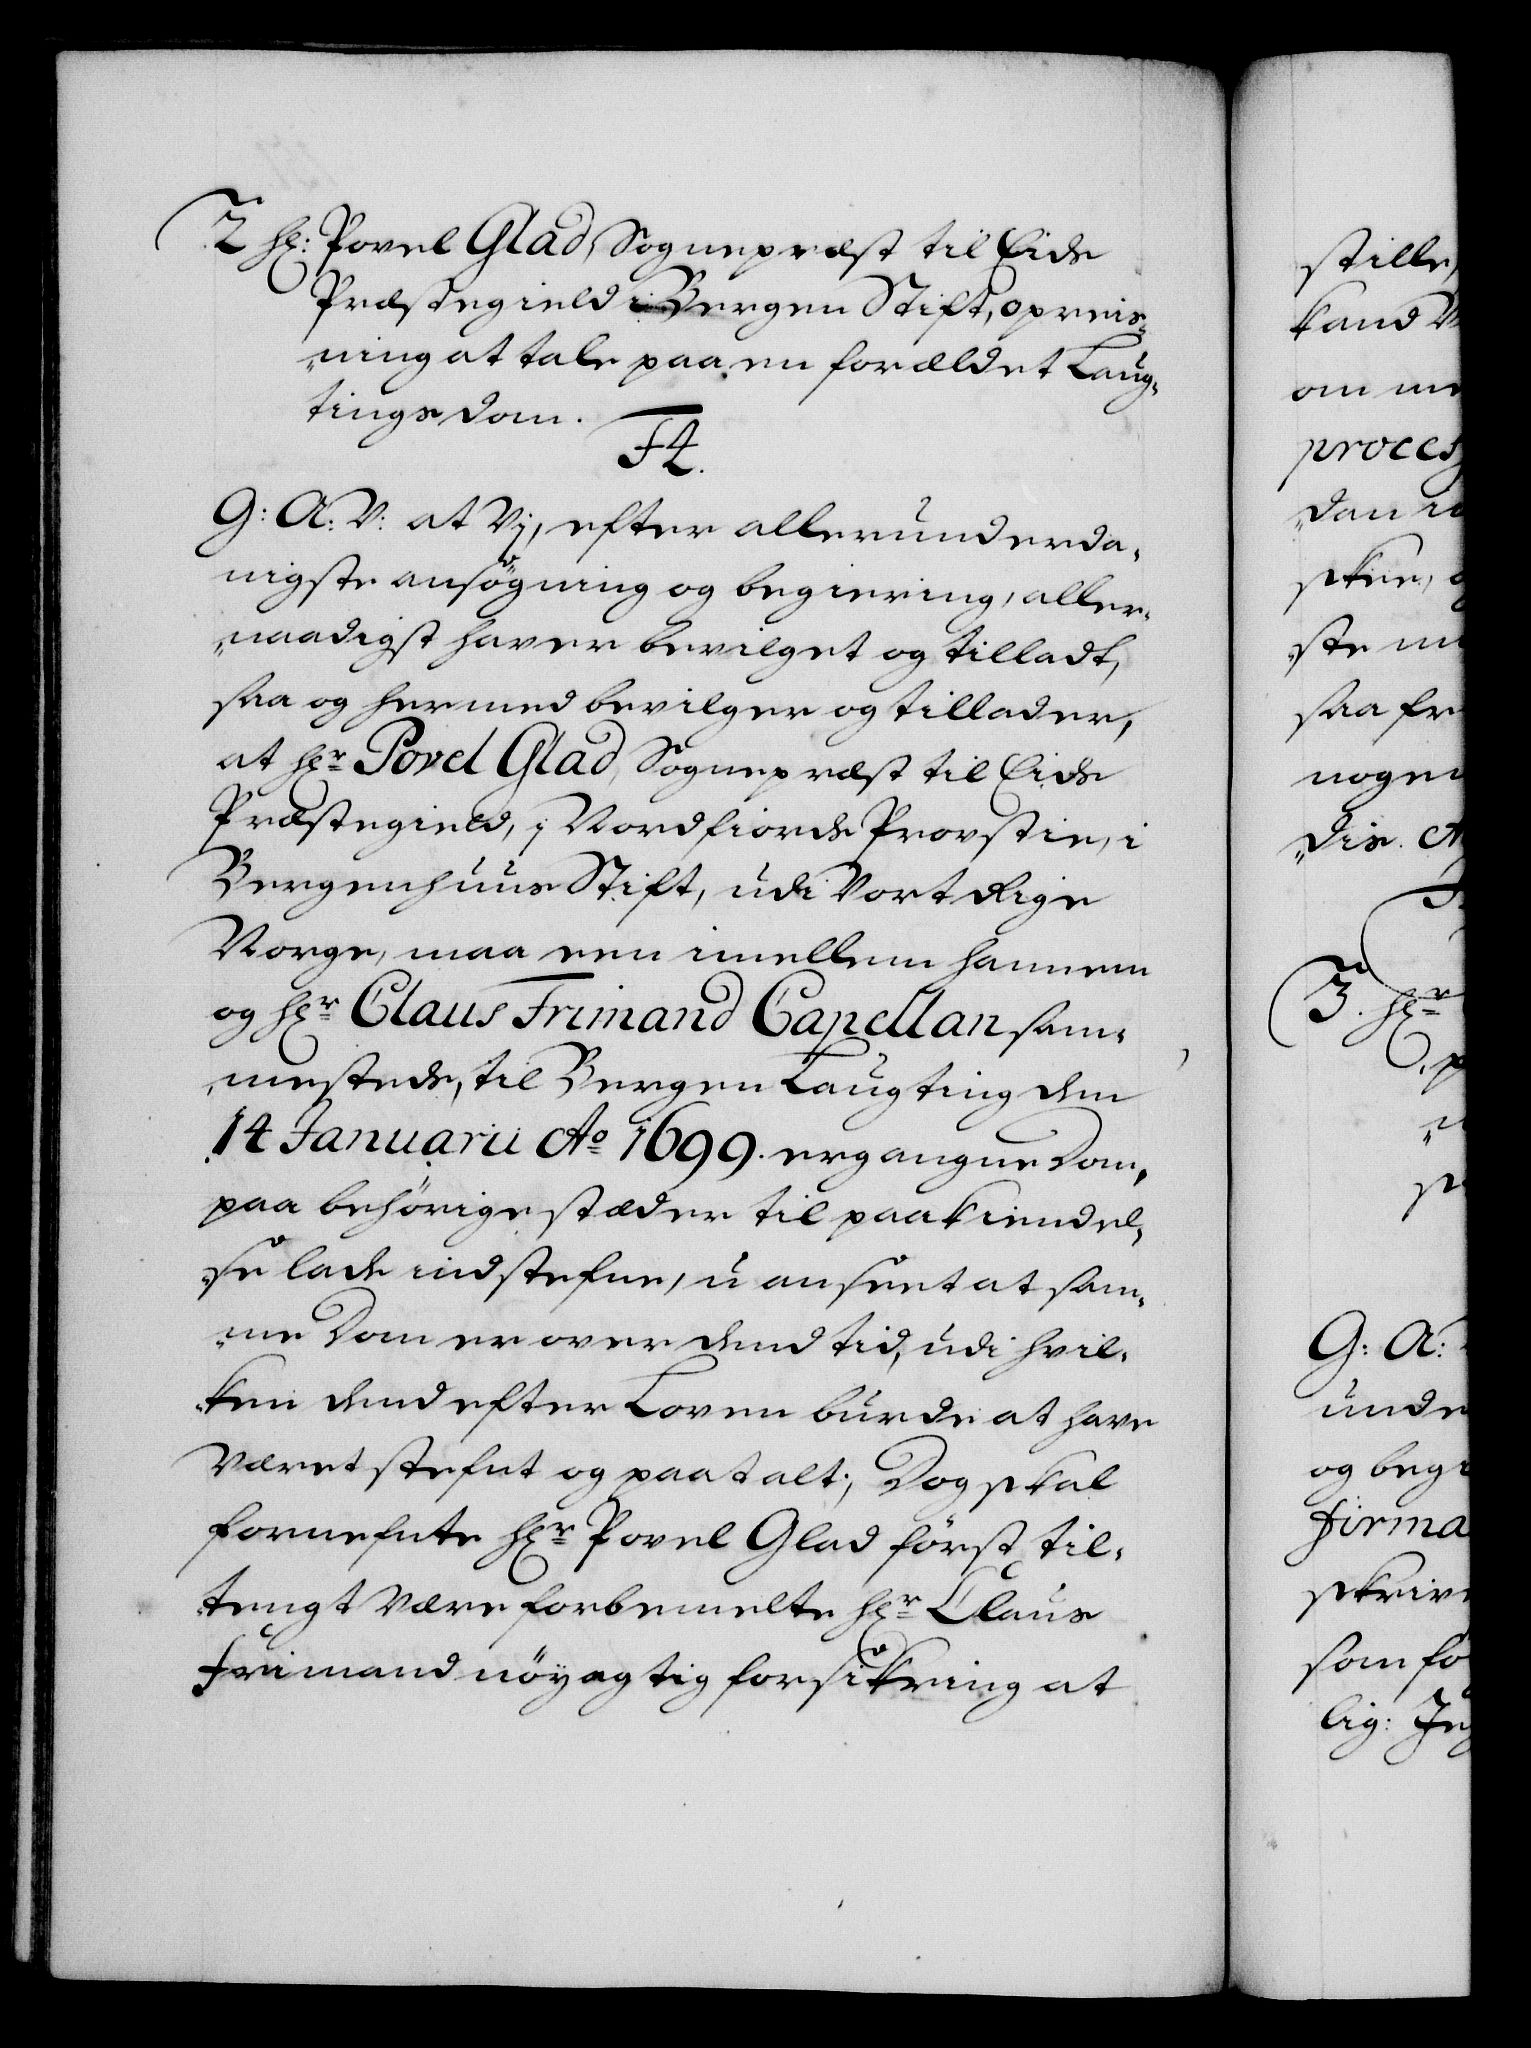 2 hr: Povel Glad, Sognepræst til Eids
Præstegield i Bergen Stift, opreis-
„ning at tale paa en forældet Laug-
tings dom.
F4.
G: A: V: at Vj, efter allerunderda-
nigste ansøgning og begiering, aller-
„naadigst haver bevilget og tilladt,
saa og hermed bevilger og tillader,
at hr Povel Glad, Sognepræst til Eids
Præstegield, i Nordfiords Provstie, i
Bergenhuus Stift, udi Vort Rige
Norge, maa een imellem hannem
og hr Claus Frimand Capellan sam-
„mesteds, til Bergen Laugting den
14 Januarii Ao 1699. ergangne Dom,
paa behörige stæder til paakiendel-
„se lade indstefne, u anseet at sam-
„me Dom er over dend tid, udi hvil-
„ken dend efter Loven burde at have
Været stefnt og paatalt; Dog skal
fornefnte hr Povel Glad først til-
„tengt være forbemelte hr Claus
Frimand nöyagtig forsikring at
stille,
kand V
om me
process
„dan i
skee, o
„ste m
saa fr
nogen
„dis. A
3. hr
G: A:
unde
og begi
firma
skriv
som fo
lig: